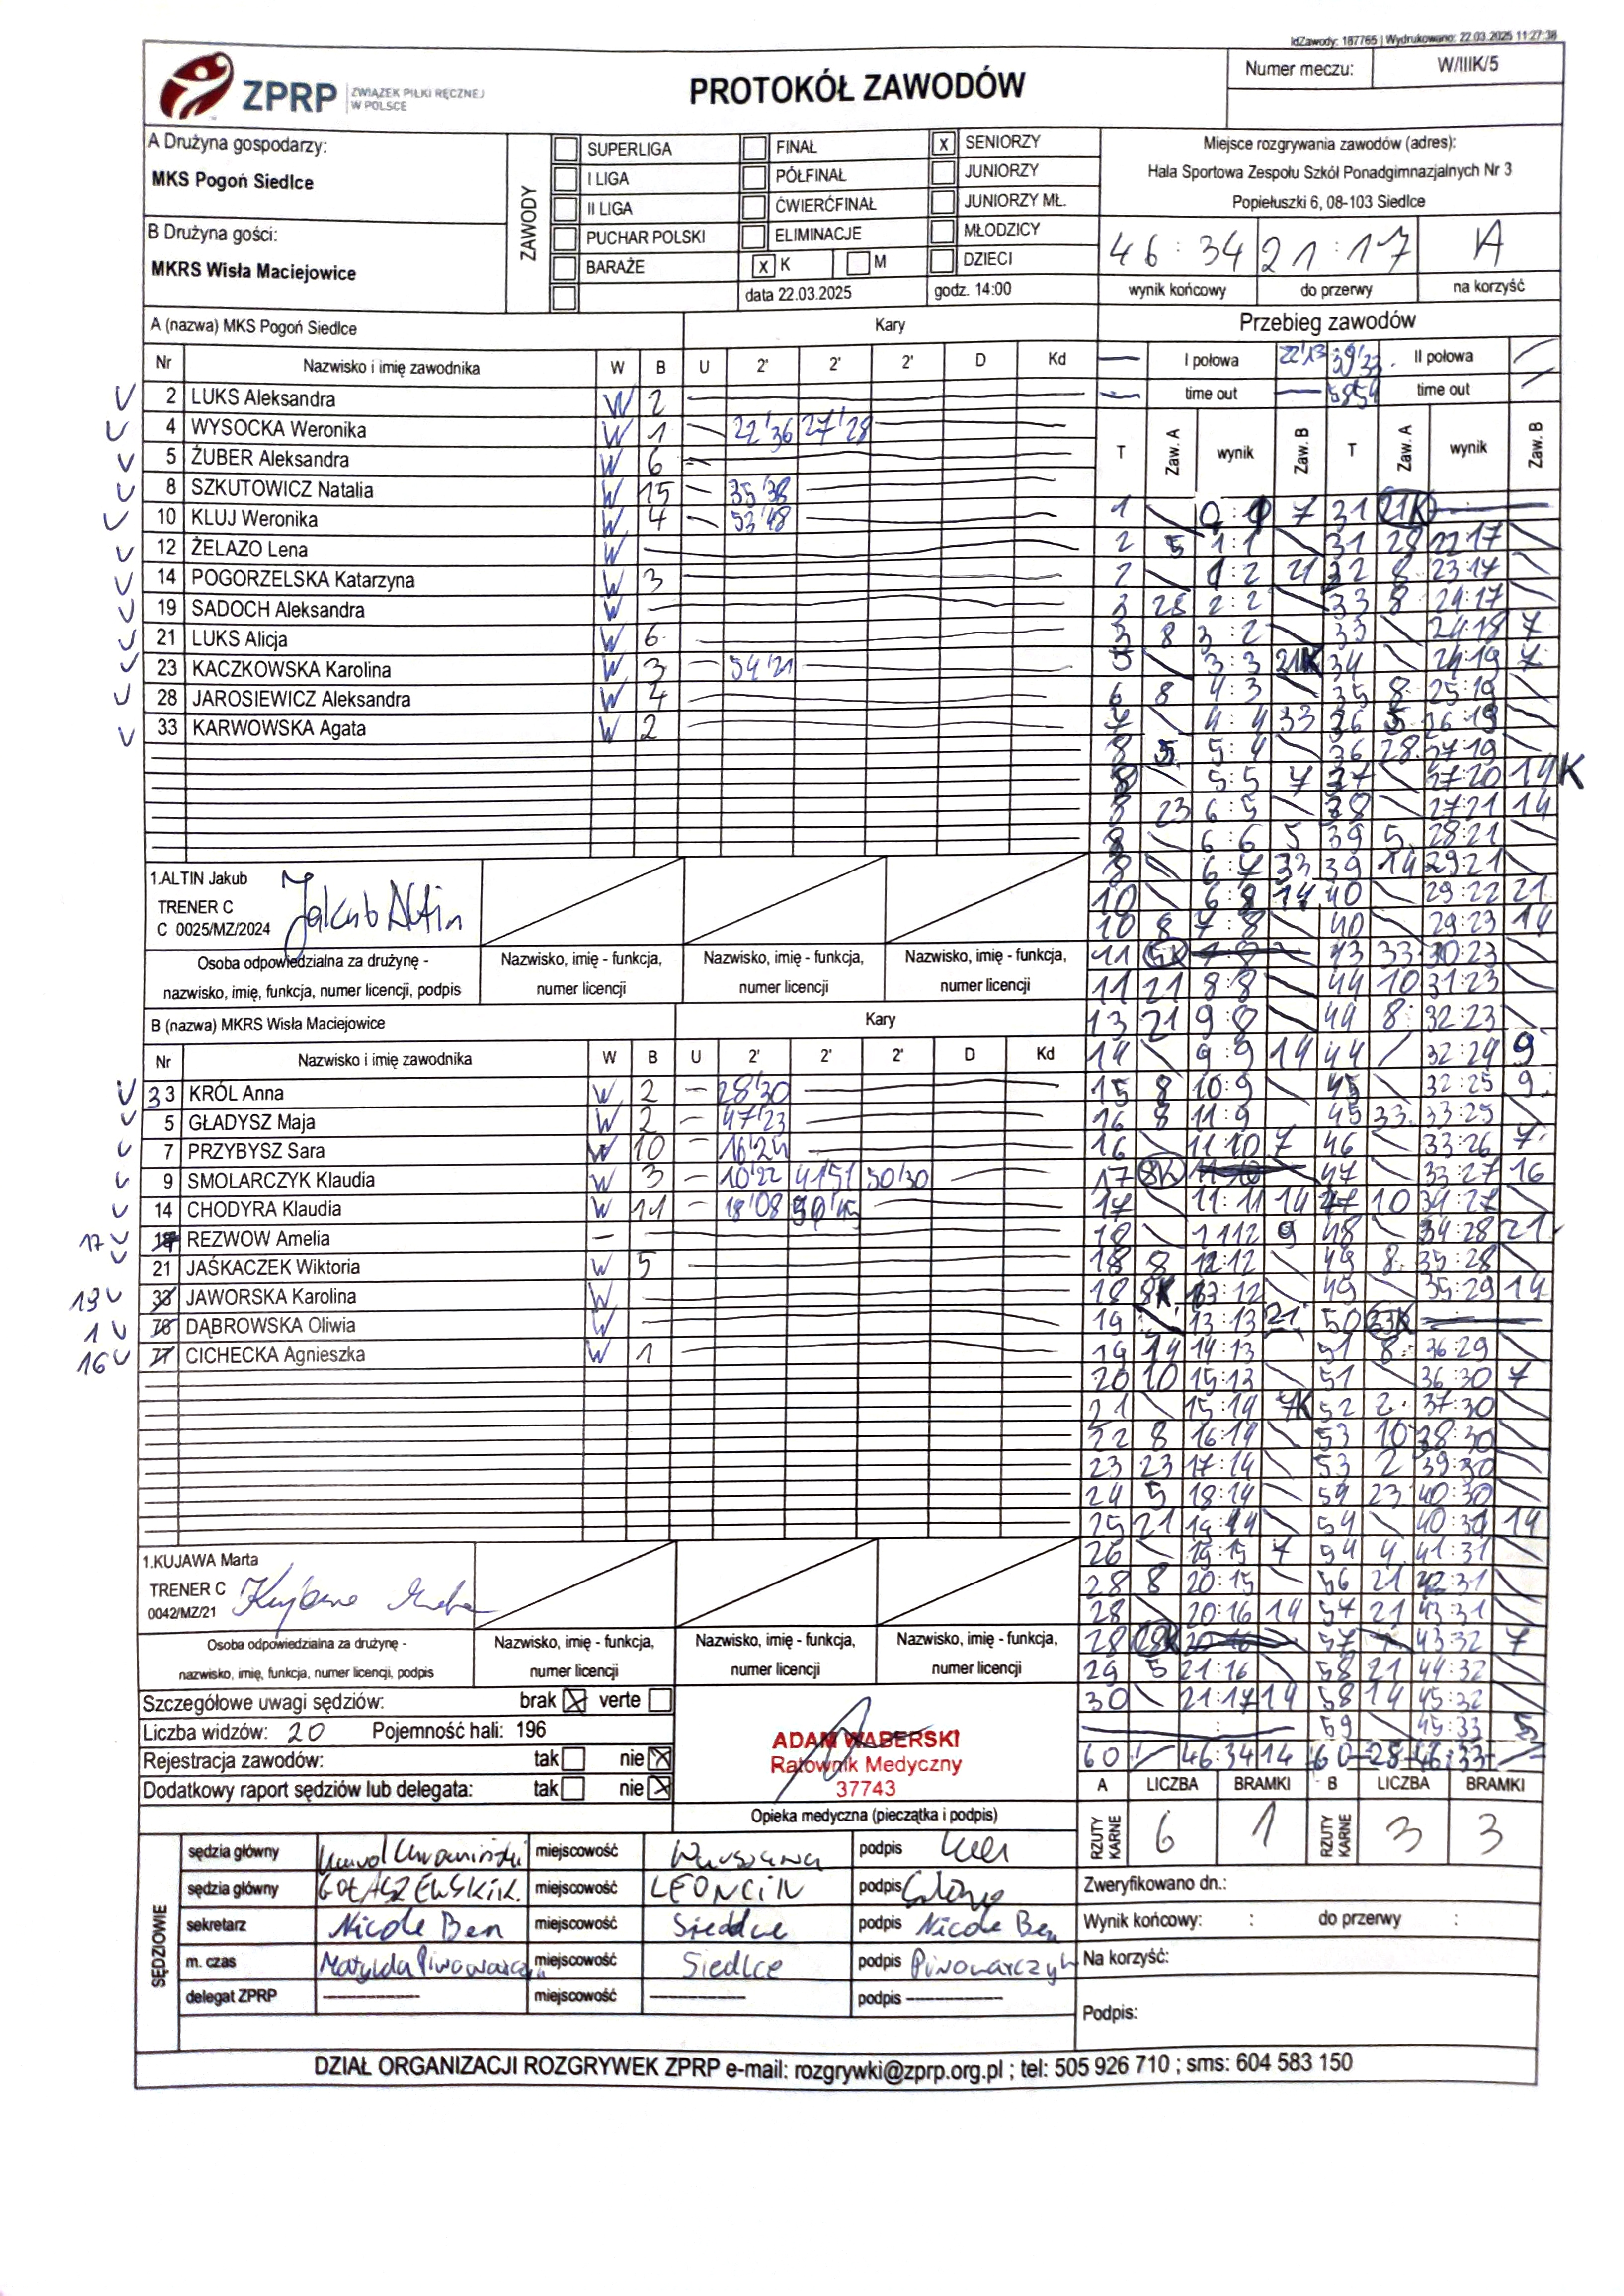 IdZawody: 187765 | Wydrukowano: 22.03.2025 11:27:38
ZPRP ZWIĄZEK PIŁKI RĘCZNEJ
W POLSCE
PROTOKÓŁ ZAWODÓW
Numer meczu: W/IIIK/5
A Drużyna gospodarzy:
MKS Pogoń Siedlce
B Drużyna gości:
MKRS Wisła Maciejowice
ZAWODY
SUPERLIGA FINAŁ X SENIORZY
I LIGA PÓŁFINAŁ JUNIORZY
II LIGA ĆWIERĆFINAŁ JUNIORZY MŁ.
PUCHAR POLSKI ELIMINACJE MŁODZICY
BARAŻE X K M DZIECI
data 22.03.2025 godz. 14:00
Miejsce rozgrywania zawodów (adres):
Hala Sportowa Zespołu Szkół Ponadgimnazjalnych Nr 3
Popiełuszki 6, 08-103 Siedlce
46:34 21:17 A
wynik końcowy do przerwy na korzyść
A (nazwa) MKS Pogoń Siedlce Kary
Nr Nazwisko i imię zawodnika W B U 2' 2' 2' D Kd
2 LUKS Aleksandra W 2
4 WYSOCKA Weronika W 1 22'36 27'28
5 ŻUBER Aleksandra W 6
8 SZKUTOWICZ Natalia W 15 35'38
10 KLUJ Weronika W 4 53'48
12 ŻELAZO Lena W
14 POGORZELSKA Katarzyna W 3
19 SADOCH Aleksandra W
21 LUKS Alicja W 6
23 KACZKOWSKA Karolina W 3 54'21
28 JAROSIEWICZ Aleksandra W 4
33 KARWOWSKA Agata W 2
1.ALTIN Jakub
TRENER C
C 0025/MZ/2024
Jakub Altin
Osoba odpowiedzialna za drużynę - Nazwisko, imię - funkcja, Nazwisko, imię - funkcja, Nazwisko, imię - funkcja,
nazwisko, imię, funkcja, numer licencji, podpis numer licencji numer licencji numer licencji
B (nazwa) MKRS Wisła Maciejowice Kary
Nr Nazwisko i imię zawodnika W B U 2' 2' 2' D Kd
33 KRÓL Anna W 2 28'30
5 GŁADYSZ Maja W 2 47'23
7 PRZYBYSZ Sara W 10 16'24
9 SMOLARCZYK Klaudia W 3 10'22 41'51 50'30
14 CHODYRA Klaudia W 11 18'08
17 REZWOW Amelia
21 JAŚKACZEK Wiktoria W 5
19 JAWORSKA Karolina W
1 DĄBROWSKA Oliwia W
16 CICHECKA Agnieszka W 1
1.KUJAWA Marta
TRENER C
0042/MZ/21
Osoba odpowiedzialna za drużynę - Nazwisko, imię - funkcja, Nazwisko, imię - funkcja, Nazwisko, imię - funkcja,
nazwisko, imię, funkcja, numer licencji, podpis numer licencji numer licencji numer licencji
Szczegółowe uwagi sędziów: brak X verte
Liczba widzów: 20 Pojemność hali: 196
Rejestracja zawodów: tak nie X
Dodatkowy raport sędziów lub delegata: tak nie X
ADAM WABERSKI
Ratownik Medyczny
37743
Opieka medyczna (pieczątka i podpis)
Przebieg zawodów
I połowa 22'13 39'33 II połowa
time out 58'54 time out
T Zaw. A wynik Zaw. B T Zaw. A wynik Zaw. B
1 0:1 7 31 21K
2 5 1:1 31 28 22:17
2 1:2 21 32 8 23:17
3 28 2:2 33 8 24:17
3 8 3:2 33 24:18 7
5 3:3 21K 34 24:19 7
6 8 4:3 35 8 25:19
7 4:4 33 36 5 26:19
8 5 5:4 36 28 27:19
8 5:5 7 37 27:20 14K
8 23 6:5 38 27:21 14
8 6:6 5 39 5 28:21
8 6:7 33 39 14 29:21
10 6:8 14 40 29:22 21
10 8 7:8 40 29:23 14
11 43 33 30:23
11 21 8:8 44 10 31:23
13 21 9:8 44 8 32:23
14 9:9 14 44 32:24 9
15 8 10:9 45 32:25 9
16 8 11:9 45 33 33:25
16 11:10 7 46 33:26 7
17 8K 47 33:27 16
17 11:11 14 47 10 34:27
18 11:12 9 48 34:28 21
18 8 12:12 49 8 35:28
18 8K 13:12 49 35:29 14
19 13:13 21 50 33K
19 14 14:13 51 8 36:29
20 10 15:13 51 36:30 7
21 15:14 7K 52 2 37:30
22 8 16:14 53 10 38:30
23 23 17:14 53 2 39:30
24 5 18:14 54 23 40:30
25 21 19:14 54 40:31 14
26 19:15 7 54 4 41:31
28 8 20:15 56 21 42:31
28 20:16 14 57 21 43:31
28 57 43:32 7
29 5 21:16 58 21 44:32
30 21:17 14 58 14 45:32
59 45:33 5
60 46:34 14 60 28 46:33
A LICZBA BRAMKI B LICZBA BRAMKI
RZUTY KARNE 6 1 RZUTY KARNE 3 3
SĘDZIOWIE
sędzia główny miejscowość Warszawa podpis
sędzia główny GOŁASZEWSKI K. miejscowość LEONCIN podpis
sekretarz Nicole Ben miejscowość Siedlce podpis Nicole Ben
m. czas Matylda Piwowarczyk miejscowość Siedlce podpis Piwowarczyk
delegat ZPRP miejscowość podpis
Zweryfikowano dn.:
Wynik końcowy: : do przerwy :
Na korzyść:
Podpis:
DZIAŁ ORGANIZACJI ROZGRYWEK ZPRP e-mail: rozgrywki@zprp.org.pl ; tel: 505 926 710 ; sms: 604 583 150